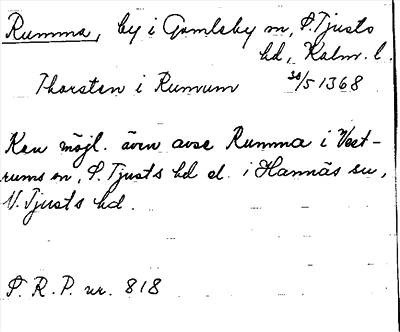 Rumma, by i Gamleby sn, S. Tjusts
hd, Kalm. l.
Thorsten i Rumum 30/5 1368
Kan möjl. även avse Rumma i Väst-
rums sn, S. Tjusts hd el. i Hannäs sn,
N. Tjusts hd.
S. R. P. nr. 818